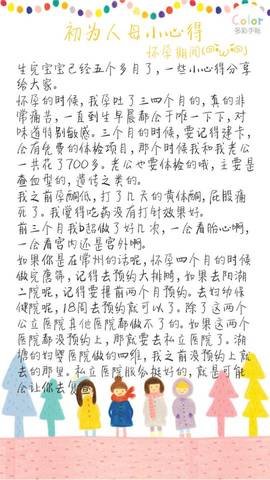 Color
多彩手帐
初为人母小心得
怀孕期间(@^ω^@)
生完宝宝已经五个多月了,一些小心得分享
给大家。
怀孕的时候,我孕吐了三四个月的,真的非
常痛苦,一直到生早晨都会干呕一下下,对
味道特别敏感。三个月的时候,要记得建卡,
会有免费的体检项目,那个时候我和我老公
一共花了700多。老公也要体检的哦,主要是
查血型的,遗传之类的。
我之前孕酮低,打了几天的黄体酮,屁股痛
死了。我觉得吃药没有打针效果好。
前三个月我b超做了好几次,一会看胎心啊,
一会看宫内还是宫外啊。
如果你是在常州的话呢,怀孕四个月的时候
做完唐筛,记得去预约大排畸,如果去阳湖
二院呢,记得要提前两个月预约。去妇幼保
健院呢,18周去预约就可以了。除了这两个
公立医院其他医院都做不了的。如果这两个
医院都没预约上,那就要去私立医院了。湖
塘的妇婴医院做的四维,我之前没预约上就
去的那里。私立医院服务挺好的,就是可能
会让你去